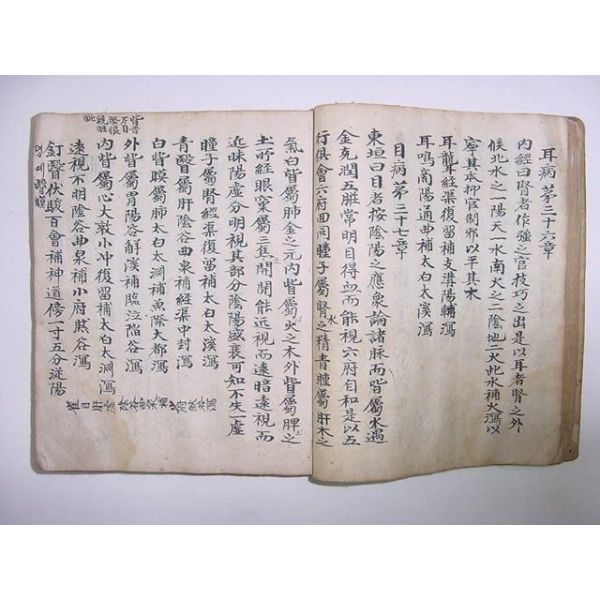 耳病第三十六章
內經曰腎者作强之官技巧之出是以耳者腎之外
候北水之一陽天一水南火之二陰地二火此水補火瀉以
宰其本抑官制邪以平其木
耳聾經渠復溜補支溝陽輔瀉
耳鳴商陽通曲補太白太谿瀉
目病第三十七章
東垣曰目者按陰陽之應象論諸脉而皆屬水過
金充潤五臟當明目得血而能視六府自和是以五
行俱會六府回周瞳子屬腎水之精青瞳屬肝木之
氣白眥屬肺金之元內眥屬火之木外眥屬脾之
土所經眼窠屬三焦開閉能远視而遠暗遠視而
近昧陽虛分明視其部分陰陽盛衰可知不失一虛
瞳子屬腎經渠復溜補太白太溪瀉
青瞖屬肝陰谷曲泉補經渠中封瀉
白眥膜屬肺太白太淵補魚際大都瀉
外眥屬胃陽谷解溪補臨泣陷谷瀉
內眥屬心大敦小冲復溜補太白太淵瀉
遠視不明陰谷曲泉補小府然谷瀉
釘瞖伏駿百會補神道傍一寸五分涎陽